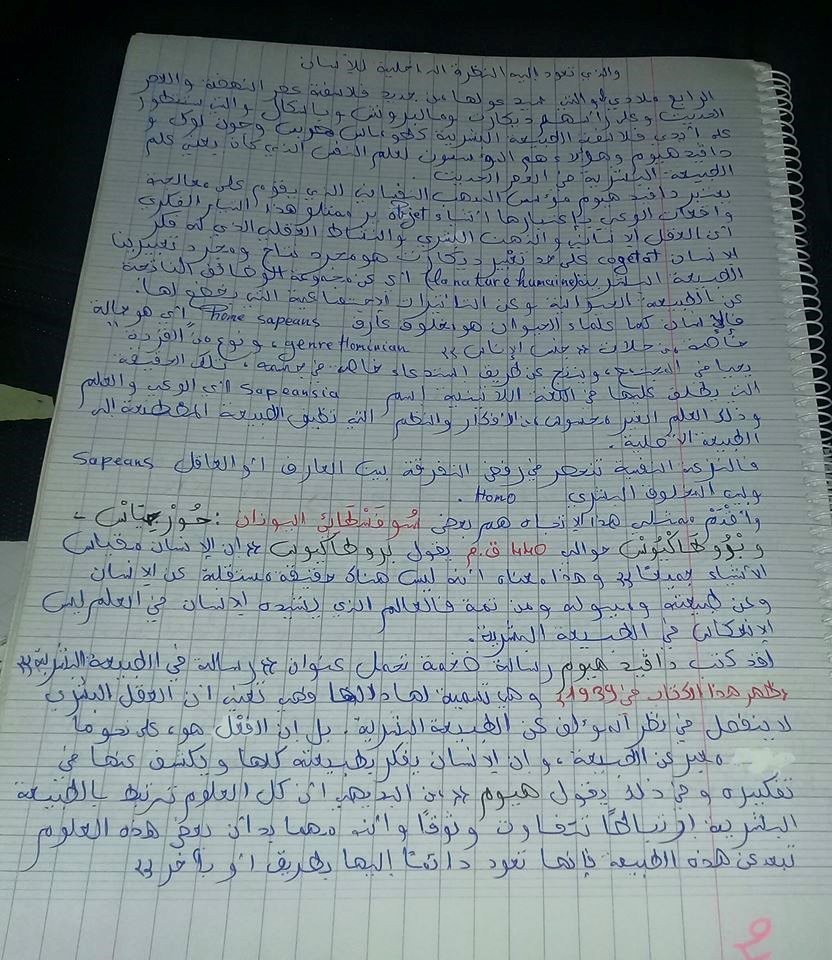 والذي تعود اليه النظرة الداخلية للإنسان
الرابع ميلادي والتي عبر عن جديد فلاسفة عصر النهضة والعصر
الحديث وعلى رأسهم ديكارت ومالبرونش وباسكال والتي ستتطور
على أيدي فلاسفة الطبيعة البشرية كطوماس هوبس وجون لوك و
دافيد هيوم وهؤلاء هم المؤسسون لعلم النفس الذي كان يعنيه علم
الطبيعة البشرية في العصر الحديث.
يعتبر دافيد هيوم مؤسس المذهب النفساني الذي يقوم على معالجة
واقعات الوعي باعتبارها أشياء objet بر ممثلو هذا التيار الفكري
أن العقل الإنساني والذهن البشري والنشاط العقلي الذي له فكر
الإنسان cogetat على حد تعبير ديكارت هو مجرد نتاج ومجرد تعبير عن
الطبيعة البشرية (la nature humaine) أي عن مجموعة الوظائف الناتجة
عن الطبيعة الحيوانية وعن التأثيرات الاجتماعية التي يخضع لها.
فالإنسان كما علماء الحيوان هو مخلوق عارف home sapeans أي هو حالة
خاصة من حالات «جنس الإنسان» genre Hominian، ونوع من القردة"
يحيا في المجتمع، وينتج عن طريق استدعاء خاص في جسمه، تلك الحقيقة
التي يطلق عليها في اللغة اللاتينية اسم Sapeansia أي الوعي والعلم
وذلك العلم الغير محسوس من الأفكار والنظم التي تطبق الطبيعة المصطنعة الى
الطبيعة الأصلية.
فالنزعة النفسية تنحصر في رفض التفرقة بين العارف أو العاقل Sapeans
وبين المخلوق البشري Homo.
وأقدم ممثلي هذا الاتجاه هم بعض سوفسطائي اليونان: جورجياس -
وبروطاكيوس حوالي 440 ق.م يقول بروطاكيوس «إن الإنسان مقياس
الأشياء جميعا» وهذا معناه أنه ليس هناك حقيقة مستقلة عن الإنسان
وعن طبيعته وميوله ومن ثمة فالعالم الذي يشيده الإنسان في العلم ليس
الا انعكاس في الطبيعة البشرية.
لقد كتب دافيد هيوم رسالة ضخمة تحمل عنوان «رسالة في الطبيعة البشرية»
{ظهر هذا الكتاب في 1939} وهي تسمية لها دلالتها فهي تعني أن العقل البشري
لا ينفصل في نظر المؤلف عن الطبيعة البشرية. بل إن العقل هو، على نحو ما
معبر عن الطبيعة، وإن الإنسان يفكر بطبيعته كلها ويكشف عنها في
تفكيره وفي ذلك يقول هيوم «من البديهي أن كل العلوم ترتبط بالطبيعة
البشرية ارتباطا تتفاوت وثوقا وأنه مهما بدا أن بعض هذه العلوم
تبعد عن هذه الطبيعة فإنها تعود دائما إليها بطريق أو بآخر»
2